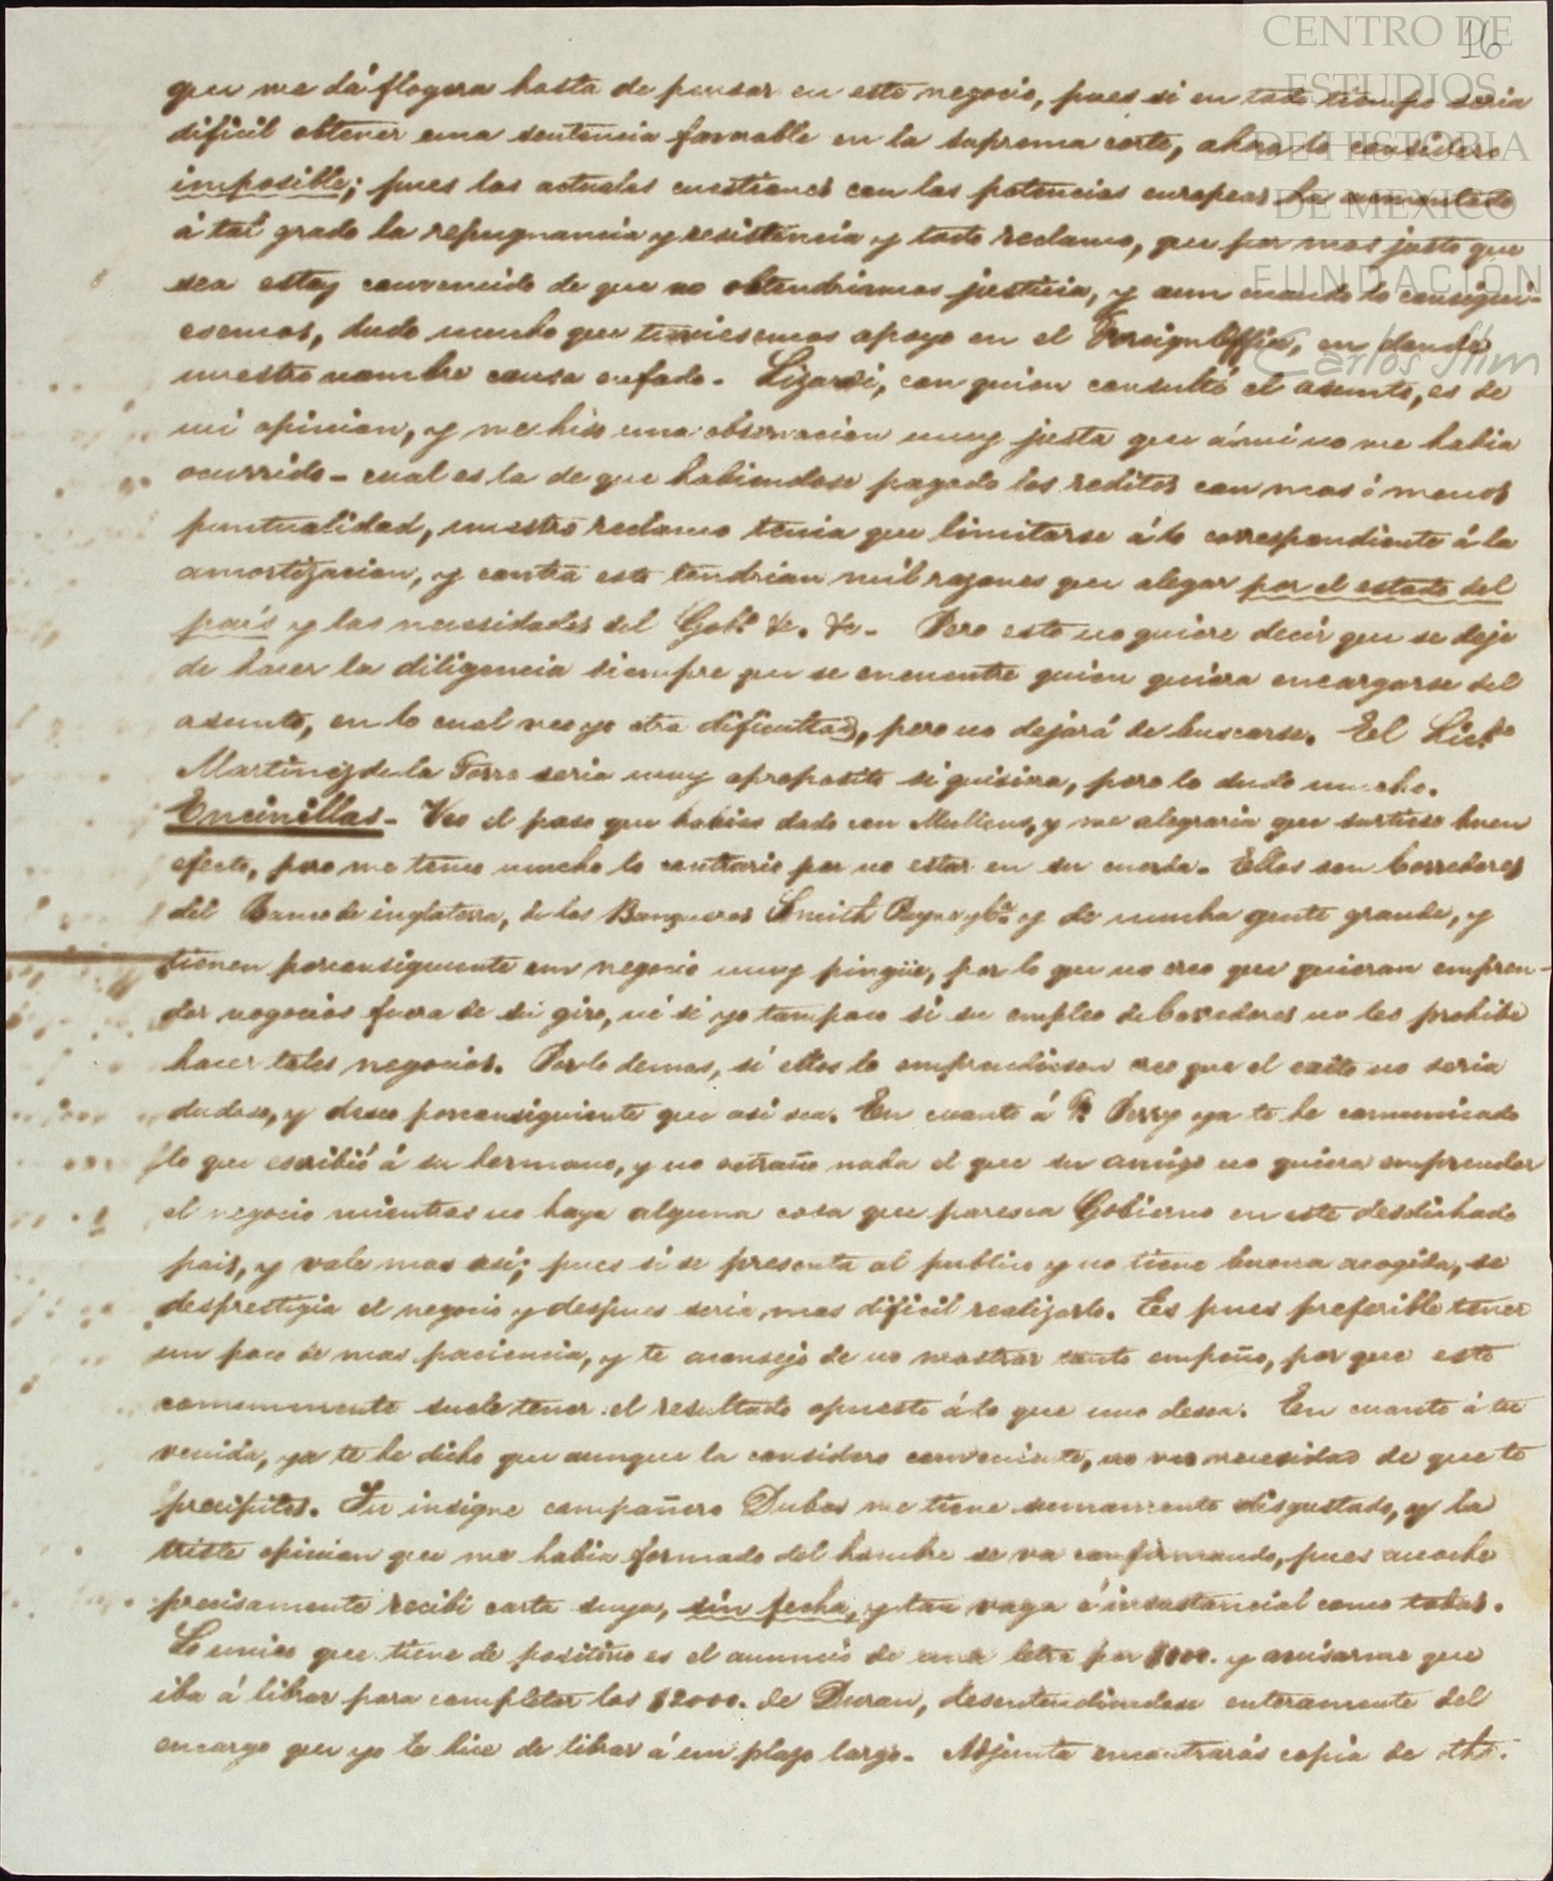 CENTRO DE
ESTUDIOS
DE HISTORIA
DE MEXICO
FUNDACIÓN
Carlos Slim
16
que me dá flogera hasta de pensar en este negocio, pues si en todo tiempo seria
dificil obtener una sentencia favorable en la suprema corte, ahora lo considero
imposible; pues las actuales cuestiones con las potencias europeas ha aumentado
á tal grado la repugnancia y resistencia y todo reclamo, que por mas justo que
sea estoy convencido de que no obtendriamos justicia, y aun cuando lo consigui-
esemos, dudo mucho que tuviesemos apoyo en el Foreign Office, en donde
nuestro nombre causa enfado. Lizardi, con quien consulté el asunto, es de
mi opinion, y me hizo una observacion muy justa que á mi no me habia
ocurrido - cual es la de que habiendose pagado los reditos con mas ó menos
puntualidad, nuestro reclamo tenia que limitarse á lo correspondiente á la
amortizacion, y contra esto tendrian mil razones que alegar por el estado del
pais y las necesidades del Gob.º &c. &c. Pero esto no quiere decir que se deje
de hacer la diligencia siempre que se encuentre quien quiera encargarse del
asunto, en lo cual veo yo otra dificultad, pero no dejará de buscarse. El Lic.do
Martinez de la Torre seria muy aproposito si quisiera, pero lo dudo mucho.
Encinillas - Veo el paso que habias dado con Mullens, y me alegraria que surtiese buen
efecto, pero me temo mucho lo contrario por no estar en su cuerda. Ellos son Corredores
del Banco de inglaterra, de los Banqueros Smith Payne y Cª y de mucha gente grande, y
tienen porconsiguiente un negocio muy pingüe, por lo que no creo que quieran empren-
der negocios fuera de su giro, ni sé yo tampoco si su empleo de Corredores no les prohibe
hacer tales negocios. Por lo demas, si ellos lo emprendiesen creo que el exito no seria
dudoso, y deseo porconsiguiente que asi sea. En cuanto á Perry ya te he comunicado
lo que escribió á su hermano, y no extraño nada el que su amigo no quiera emprender
el negocio mientras no haya alguna cosa que paresca Gobierno en este desdichado
pais, y vale mas asi; pues si se presenta al publico y no tiene buena acogida, se
desprestigia el negocio y despues seria mas dificil realizarlo. Es pues preferible tener
un poco de mas paciencia, y te aconsejo de no mostrar tanto empeño, por que esto
comunmente suele tener el resultado opuesto á lo que uno desea. En cuanto á tu
venida, ya te he dicho que aunque la considero conveniente, no veo necesidad de que te
precipites. Tu insigne compañero Dubos me tiene sumamente disgustado, y la
triste opinion que me habia formado del hombre se va confirmando, pues anoche
precisamente recibi carta suya, sin fecha, y tan vaga é insustancial como todas.
Lo unico que tiene de positivo es el anuncio de una letra por y avisarme que
iba á librar para completar los $2000. de Duran, desentendiendose enteramente del
encargo que yo le hice de librar á un plazo largo. Adjunta encontrarás copia de dha.